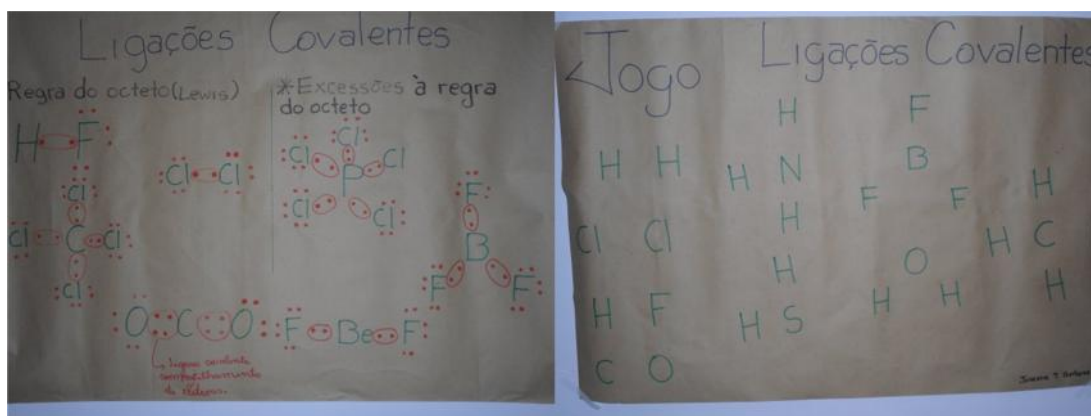 Ligações Covalentes
Regra do octeto(Lewis)
*Excessões à regra
do octeto
H F
Cl Cl
Cl
Cl C Cl
Cl
O C O
compartilhamento
de elétrons.
Cl
Cl Cl
P
Cl Cl
F
B
F F
F Be F
Jogo Ligações Covalentes
H H
Cl Cl
H F
C O
H
H N
H
H
H S
F
B
F F
O
H H
H
H C
H